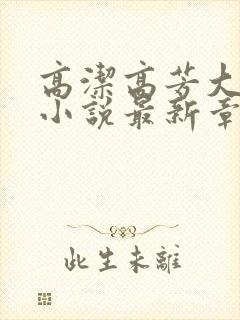 高潔高芳大
小說最新章
此生未離